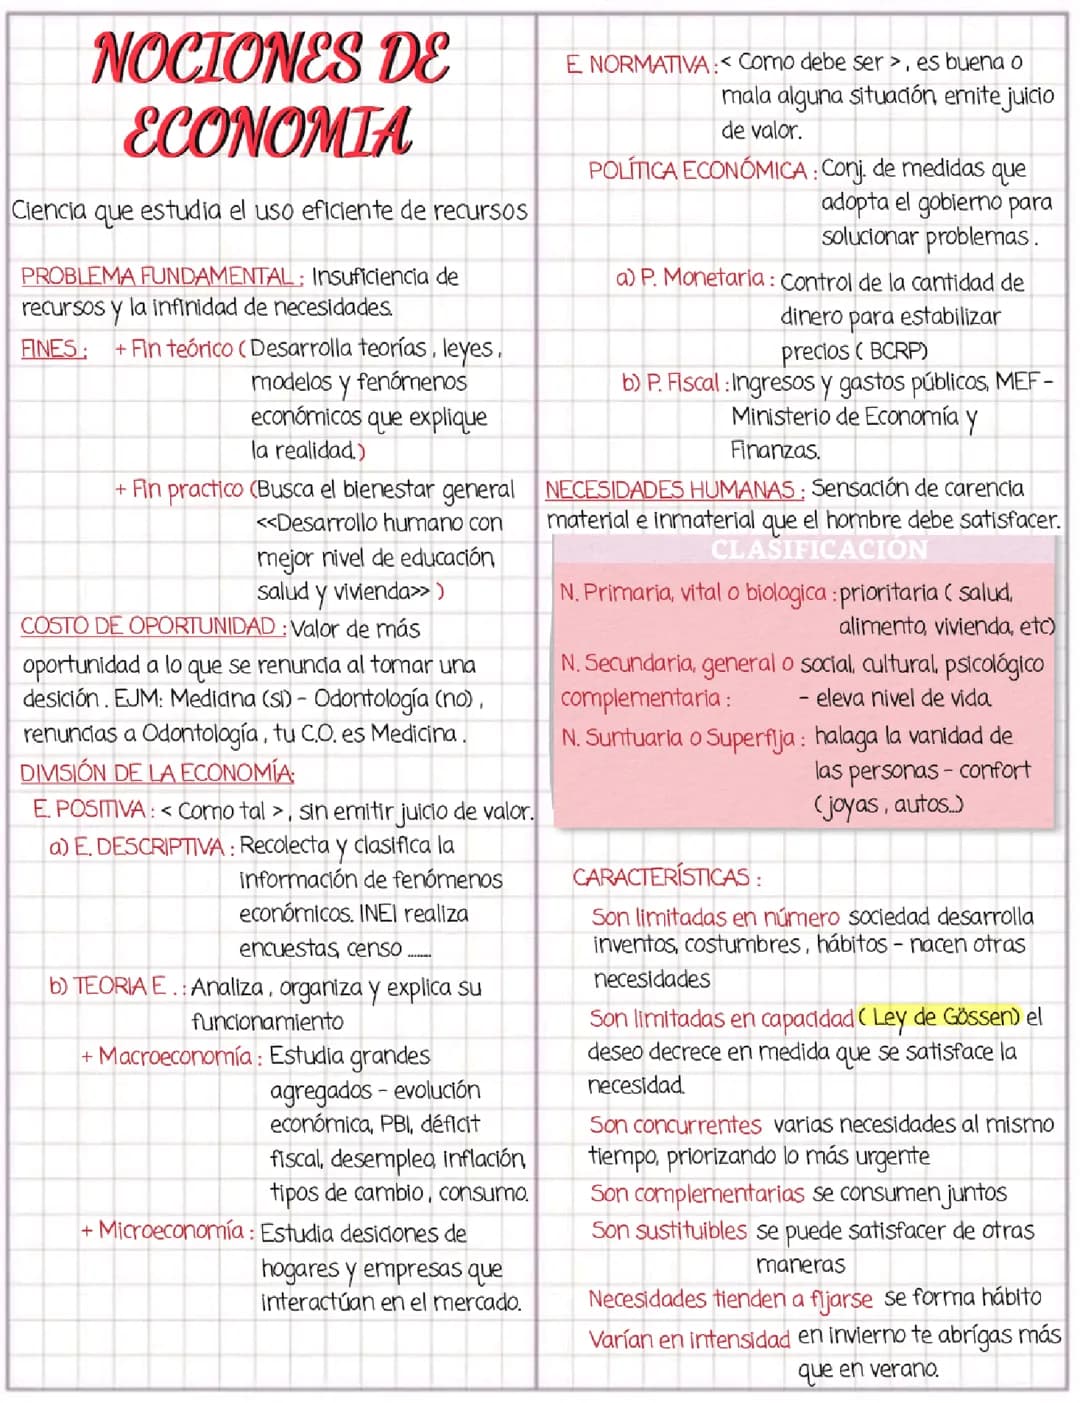 NOCIONES DE
ECONOMIA
Ciencia que estudia el uso eficiente de recursos
PROBLEMA FUNDAMENTAL : Insuficiencia de
recursos y la infinidad de necesidades.
FINES : + Fin teórico ( Desarrolla teorías , leyes ,
modelos y fenómenos
económicos que explique
la realidad.)
+ Fin practico (Busca el bienestar general
<<Desarrollo humano con
mejor nivel de educación,
salud y vivienda>> )
COSTO DE OPORTUNIDAD : Valor de más
oportunidad a lo que se renuncia al tomar una
desición . EJM: Medicina (si) - Odontología (no) ,
renuncias a Odontología , tu C.O. es Medicina .
DIVISIÓN DE LA ECONOMÍA:
E. POSITIVA : < Como tal > , sin emitir juicio de valor.
a) E. DESCRIPTIVA : Recolecta y clasifica la
información de fenómenos
económicos. INEI realiza
encuestas, censo .......
b) TEORIA E . : Analiza , organiza y explica su
funcionamiento
+ Macroeconomía : Estudia grandes
agregados - evolución
económica, PBI, déficit
fiscal, desempleo, inflación,
tipos de cambio , consumo.
+ Microeconomía : Estudia desiciones de
hogares y empresas que
interactúan en el mercado.
E. NORMATIVA : < Como debe ser > , es buena o
mala alguna situación, emite juicio
de valor.
POLÍTICA ECONÓMICA : Conj. de medidas que
adopta el gobierno para
solucionar problemas .
a) P. Monetaria : Control de la cantidad de
dinero para estabilizar
precios ( BCRP)
b) P. Fiscal : Ingresos y gastos públicos, MEF -
Ministerio de Economía y
Finanzas.
NECESIDADES HUMANAS : Sensación de carencia
material e inmaterial que el hombre debe satisfacer.
CLASIFICACIÓN
N. Primaria, vital o biologica : prioritaria ( salud,
alimento, vivienda, etc)
N. Secundaria, general o social, cultural, psicológico
complementaria : - eleva nivel de vida.
N. Suntuaria o Superflja : halaga la vanidad de
las personas - confort
( joyas , autos...)
CARACTERÍSTICAS :
Son limitadas en número sociedad desarrolla
inventos, costumbres , hábitos - nacen otras
necesidades
Son limitadas en capacidad ( Ley de Gössen) el
deseo decrece en medida que se satisface la
necesidad.
Son concurrentes varias necesidades al mismo
tiempo, priorizando lo más urgente
Son complementarias se consumen juntos
Son sustituibles se puede satisfacer de otras
maneras
Necesidades tienden a fijarse se forma hábito
Varían en intensidad en invierno te abrígas más
que en verano.